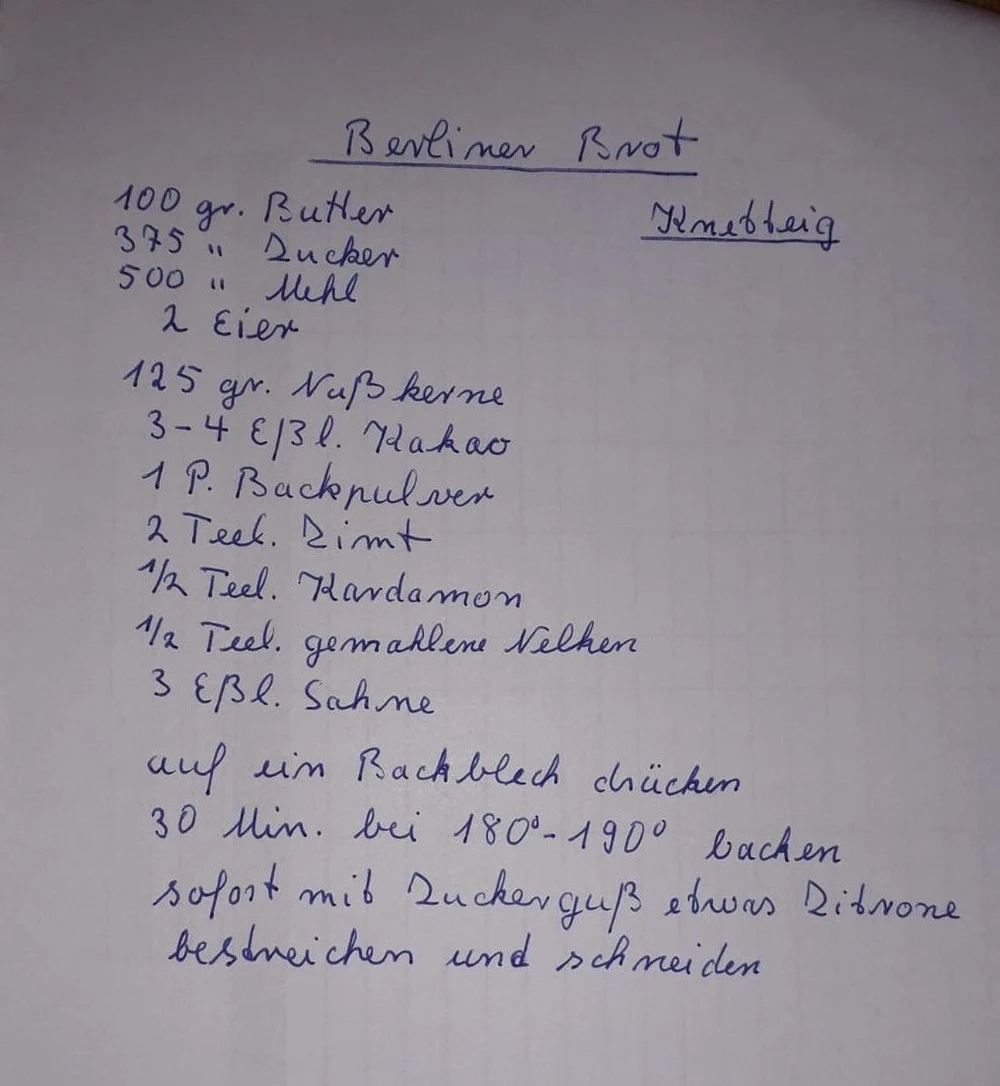 Berliner Brot
Knetteig
100 gr. Butter
375 " Zucker
500 " Mehl
2 Eier
125 gr. Nußkerne
3-4 Eßl. Kakao
1 P. Backpulver
2 Teel. Zimt
1/2 Teel. Kardamon
1/2 Teel. gemahlene Nelken
3 Eßl. Sahne
auf ein Backblech drücken
30 Min. bei 180°-190° backen
sofort mit Zuckerguß etwas Zitrone
bestreichen und schneiden